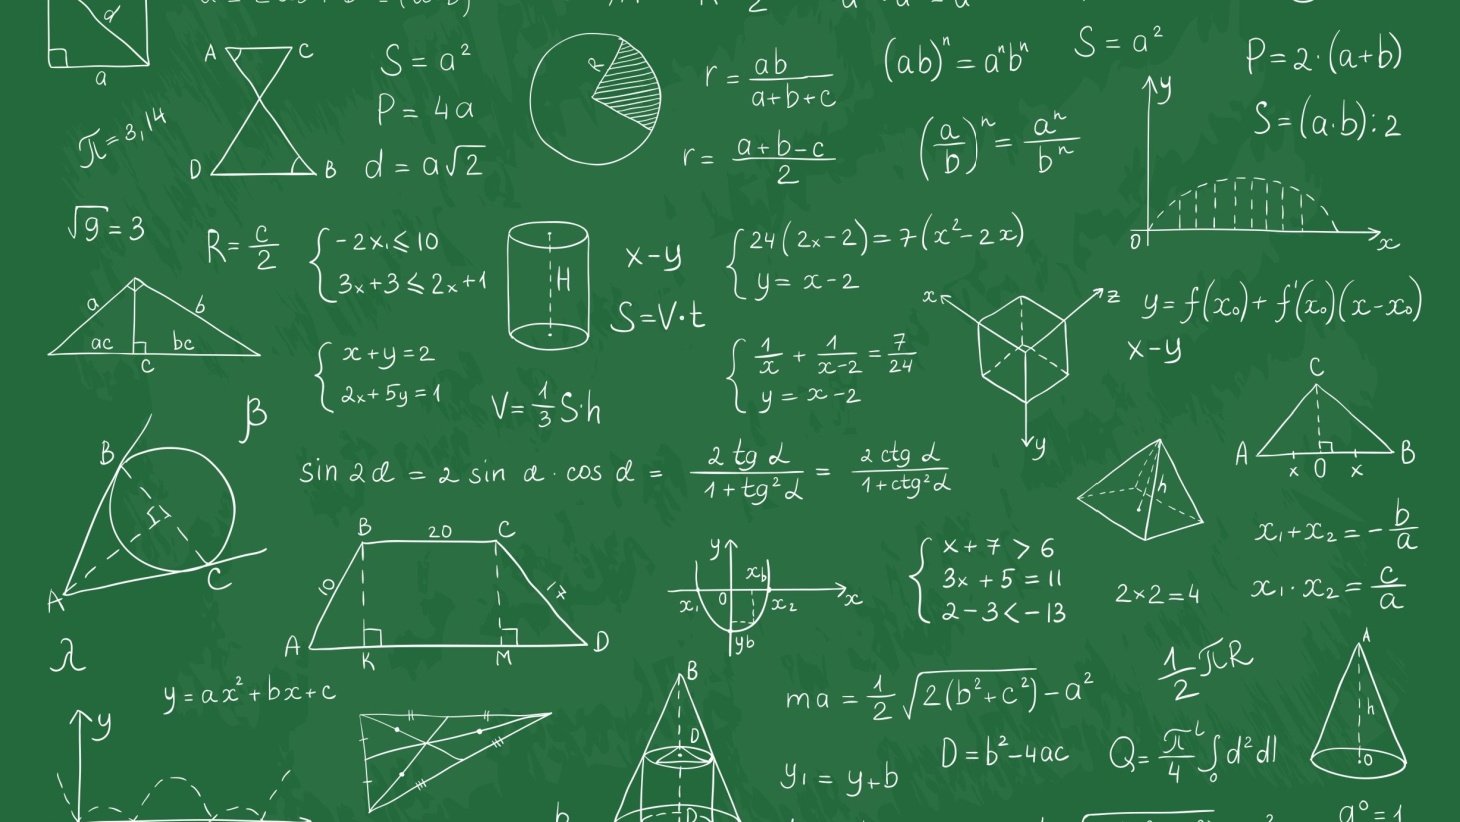 d
a
π=3,14
A C
D B
S = a²
P = 4a
d = a√2
R
r = ab/(a+b+c)
r = (a+b-c)/2
(ab)ⁿ = aⁿbⁿ
(a/b)ⁿ = aⁿ/bⁿ
S = a²
P=2·(a+b)
S=(a·b):2
y
0 x
√9 = 3
R = c/2
-2x₁⩽10
3x+3⩽2x+1
H
x-y
S=V·t
24(2x-2)=7(x²-2x)
y = x-2
x z
y
y=f(x₀)+f'(x₀)(x-x₀)
x-y
a b
ac bc
c
x+y=2
2x+5y=1
V=1/3 S·h
1/x + 1/(x-2) = 7/24
y = x-2
C
A x O x B
β
B
A C
sin 2α = 2 sin α · cos α = 2 tg α/(1+tg²α) = 2 ctg α/(1+ctg²α)
h
x₁+x₂ = -b/a
x₁·x₂ = c/a
B 20 C
10 17
A K M D
y
xb
x₁ 0 x₂ x
yb
x+7>6
3x+5=11
2-3<-13
2×2=4
λ
y=ax²+bx+c
y
B
D
D
b
ma = 1/2 √2(b²+c²)-a²
1/2 πR
D=b²-4ac
Q=π/4 ∫₀ˡ d²dl
y₁ = y+b
A
h
O
a⁰=1